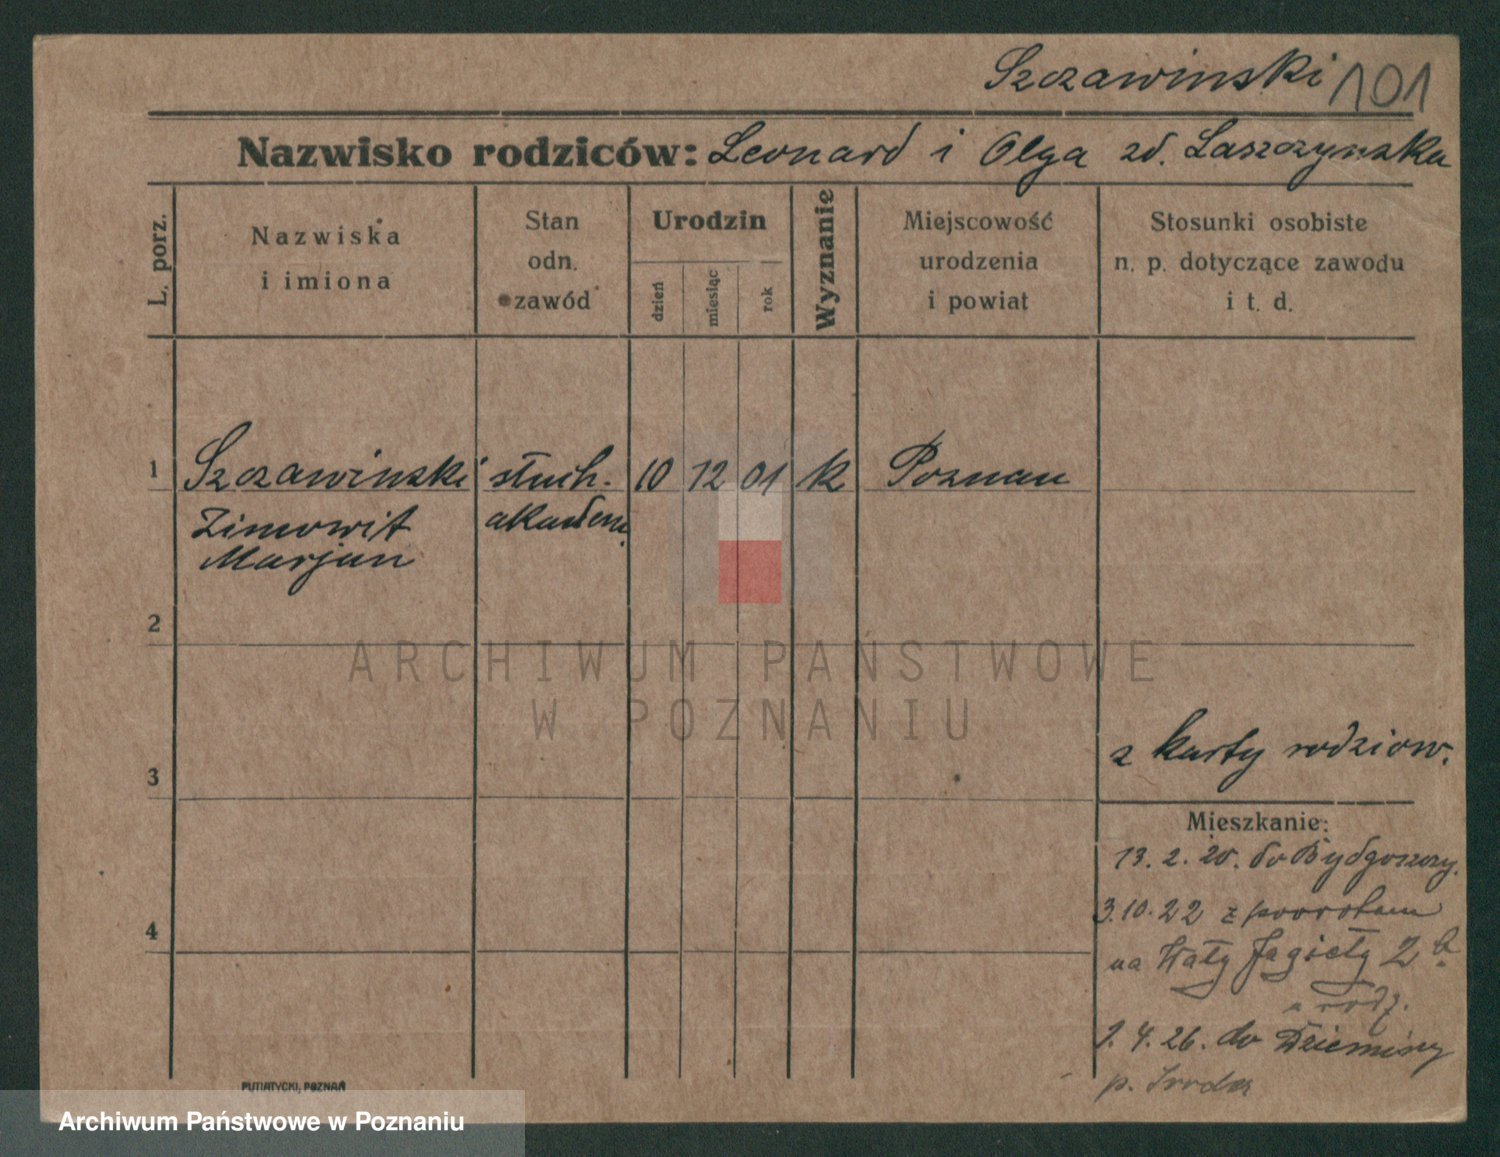 Szczawinski 101
Nazwisko rodziców: Leonard i Olga zd. Laszczynska
L. porz.
Nazwiska
i imiona
Stan
odn.
zawód
Urodzin
dzień
miesiąc
rok
Wyznanie
Miejscowość
urodzenia
i powiat
Stosunki osobiste
n. p. dotyczące zawodu
i t. d.
1 Szczawinski słuch. 10 12 01 k Poznan
Zimowit akadem.
Marjan
2
ARCHIWUM PAŃSTWOWE
W POZNANIU
z karty rodzicw.
3
Mieszkanie:
13. 2. 20. do Bydgoszczy.
3.10.22 z powrotem
4
na Wały Jagiełły 2
rodz.
1. 4. 26. do
p. Sroda
PUTIATYCKI, POZNAŃ
Archiwum Państwowe w Poznaniu